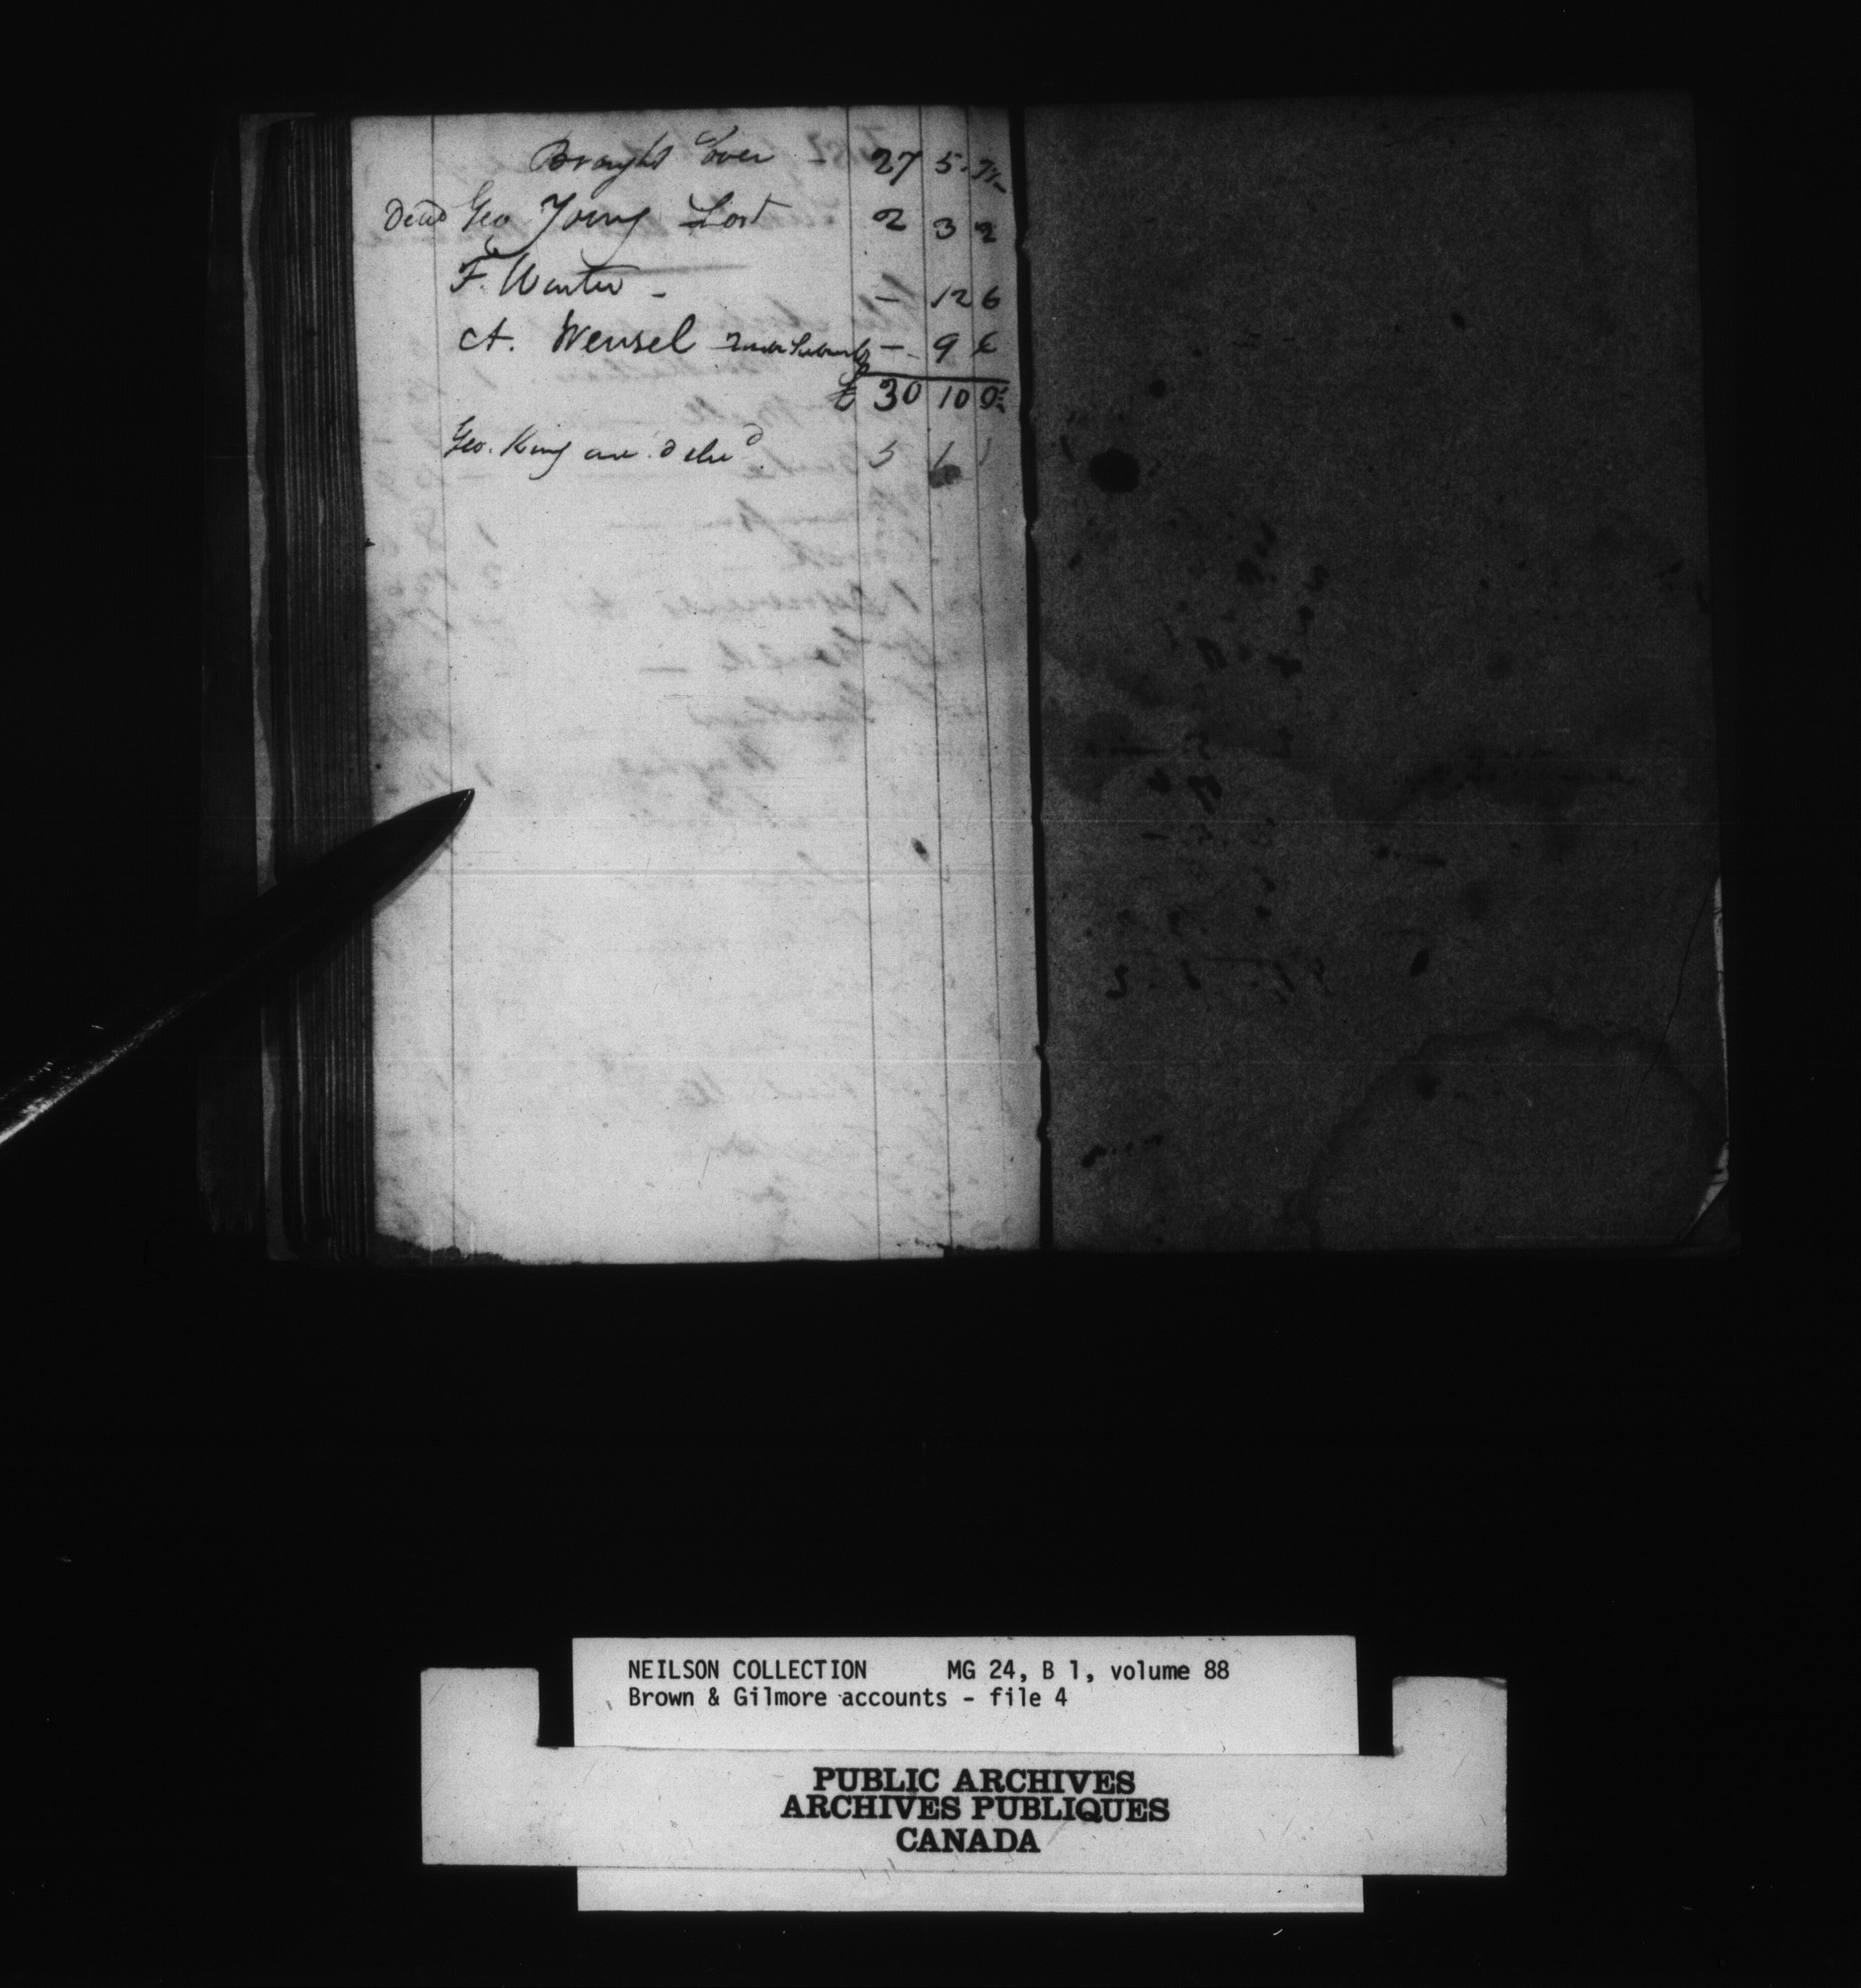 Brought over 27 5. 7½
Dead Geo Young Lost 2 3 2
F. Winter - - 12 6
A. Wensel - 9 6
£ 30 10 9½
Geo. King 5 1 1
NEILSON COLLECTION MG 24, B 1, volume 88
Brown & Gilmore accounts - file 4
PUBLIC ARCHIVES
ARCHIVES PUBLIQUES
CANADA